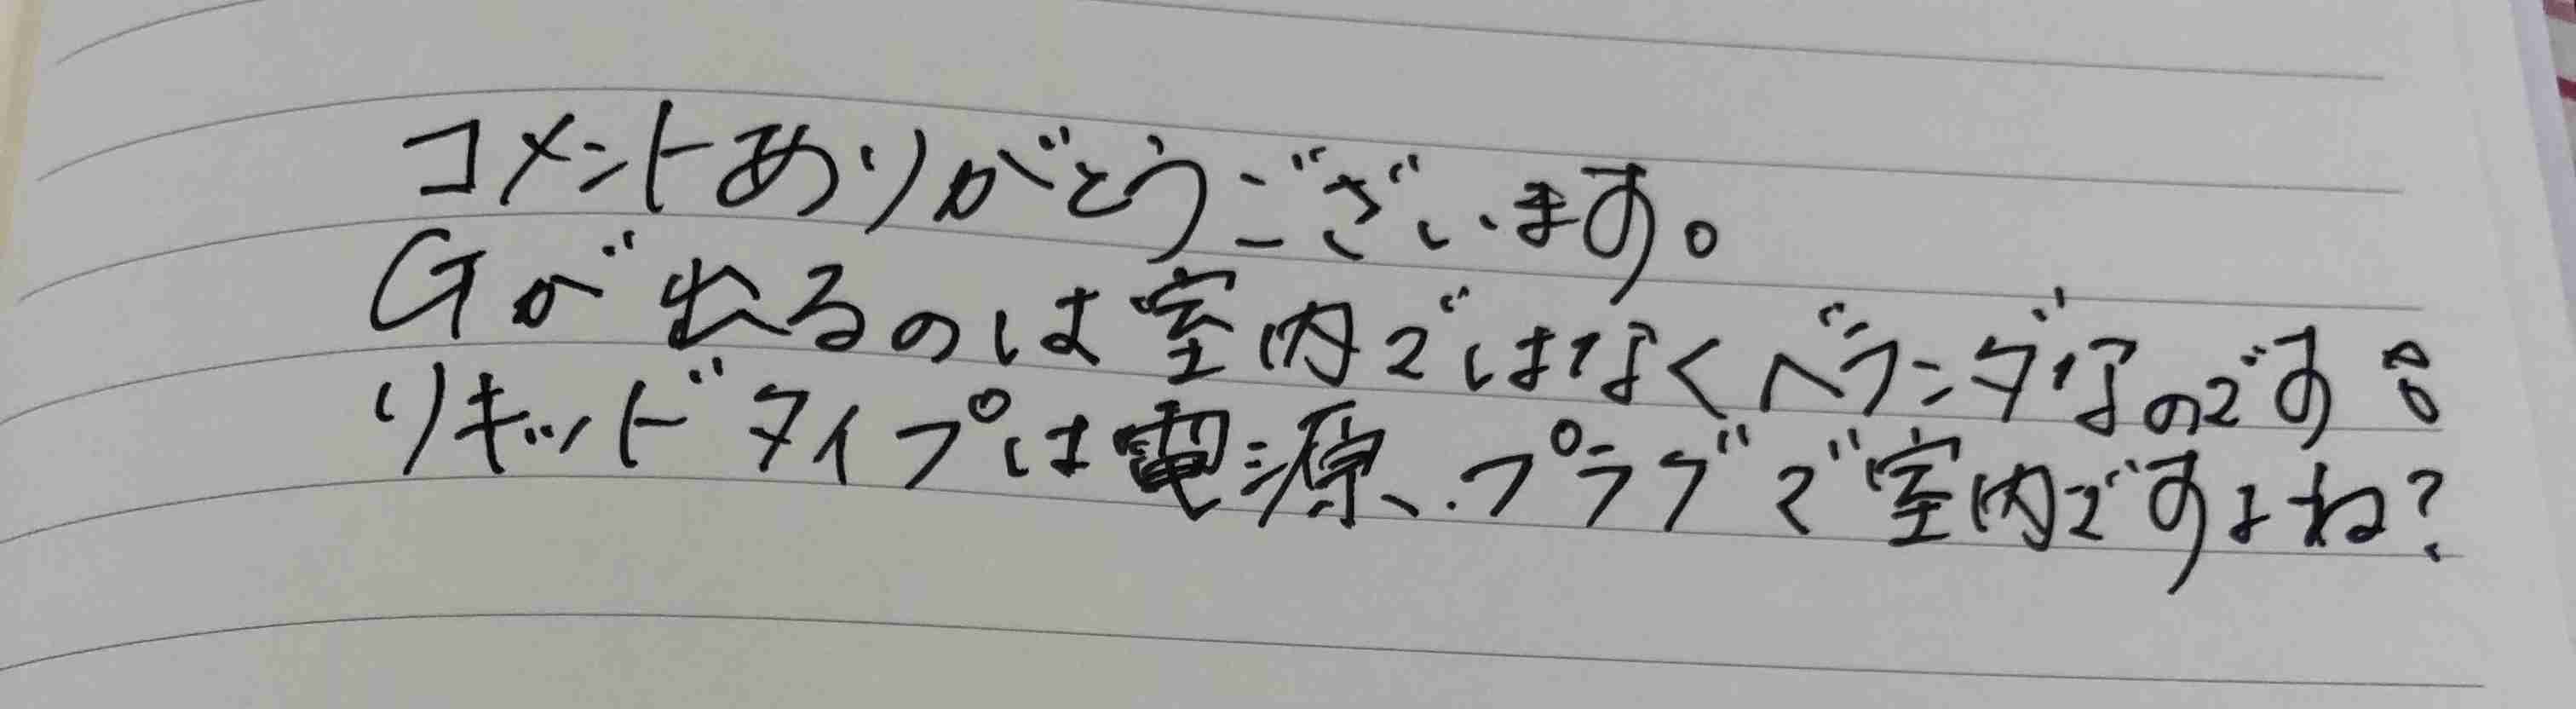 コメントありがとうございます。
Gが出るのは室内ではなくベランダなのです
リキッドタイプは電源、プラグで室内ですよね?